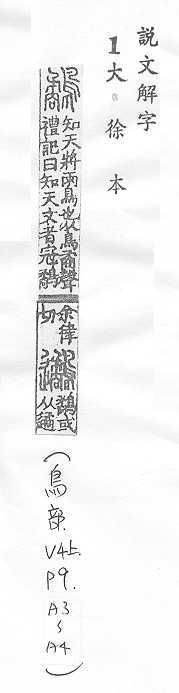 說文解字
1大徐本
鷸
知天將雨鳥也从鳥矞聲
禮記曰知天文者冠鷸
余律
切
鷸或
从遹
(鳥部. V4上. P9. A3~A4)